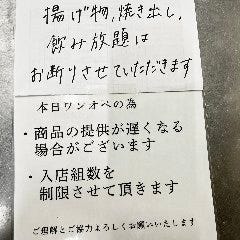 揚げ物､焼き出し､
飲み放題は
お断りさせていただきます
本日ワンオペの為
・商品の提供が遅くなる
場合がございます
・入店組数を
制限させて頂きます
ご理解とご協力よろしくお願いいたします